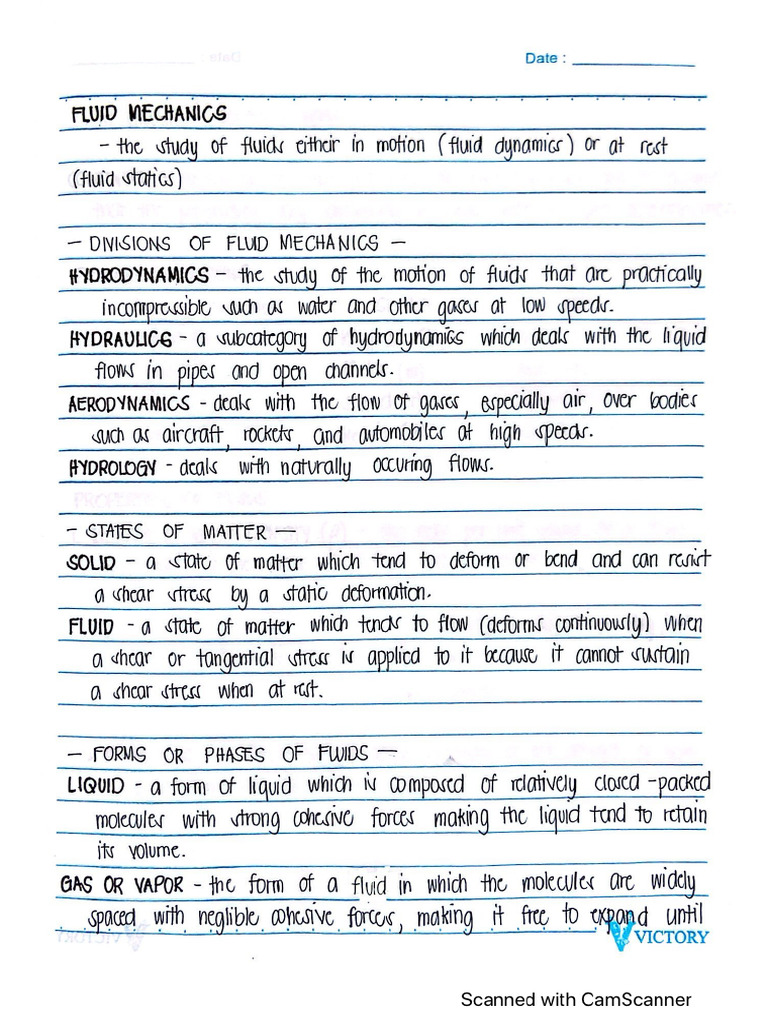 Date :
FLUID MECHANICS
- the study of fluids either in motion (fluid dynamics) or at rest
(fluid statics)
- DIVISIONS OF FLUID MECHANICS -
HYDRODYNAMICS - the study of the motion of fluids that are practically
incompressible such as water and other gases at low speeds.
HYDRAULICS - a subcategory of hydrodynamics which deals with the liquid
flows in pipes and open channels.
AERODYNAMICS - deals with the flow of gases, especially air, over bodies
such as aircraft, rockets, and automobiles at high speeds.
HYDROLOGY - deals with naturally occuring flows.
- STATES OF MATTER -
SOLID - a state of matter which tend to deform or bend and can resist
a shear stress by a static deformation.
FLUID - a state of matter which tends to flow (deforms continuously) when
a shear or tangential stress is applied to it because it cannot sustain
a shear stress when at rest.
- FORMS OR PHASES OF FLUIDS -
LIQUID - a form of liquid which is composed of relatively closed-packed
molecules with strong cohesive forces making the liquid tend to retain
its volume.
GAS OR VAPOR - the form of a fluid in which the molecules are widely
spaced with neglible cohesive forces, making it free to expand until
VICTORY
Scanned with CamScanner